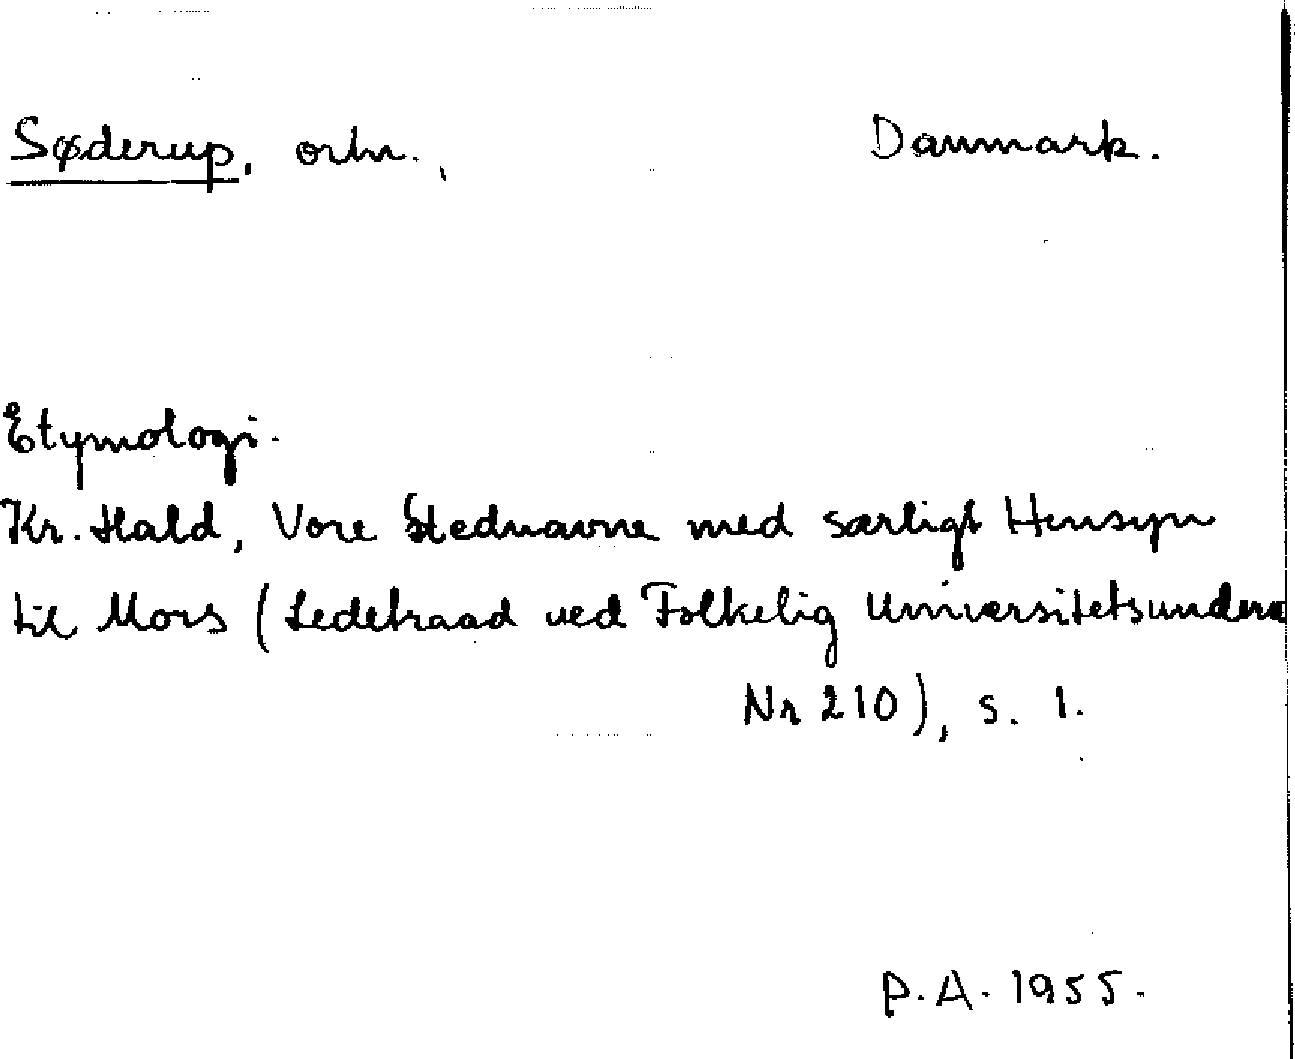 Søderup, ortn., Danmark.
Etymologi.
Kr. Hald, Vore Stednavne med særligt Hensyn
til Mors (Ledetraad ved Folkelig Universitetsunderv
Nr 210), s. 1.
P.A. 1955.